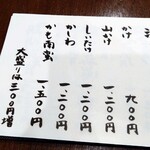 かけ 九〇〇円
山かけ 一、二〇〇円
しいたけ 一、二〇〇円
かしわ 一、二〇〇円
かも南蛮 一、五〇〇円
大盛りは三〇〇円増